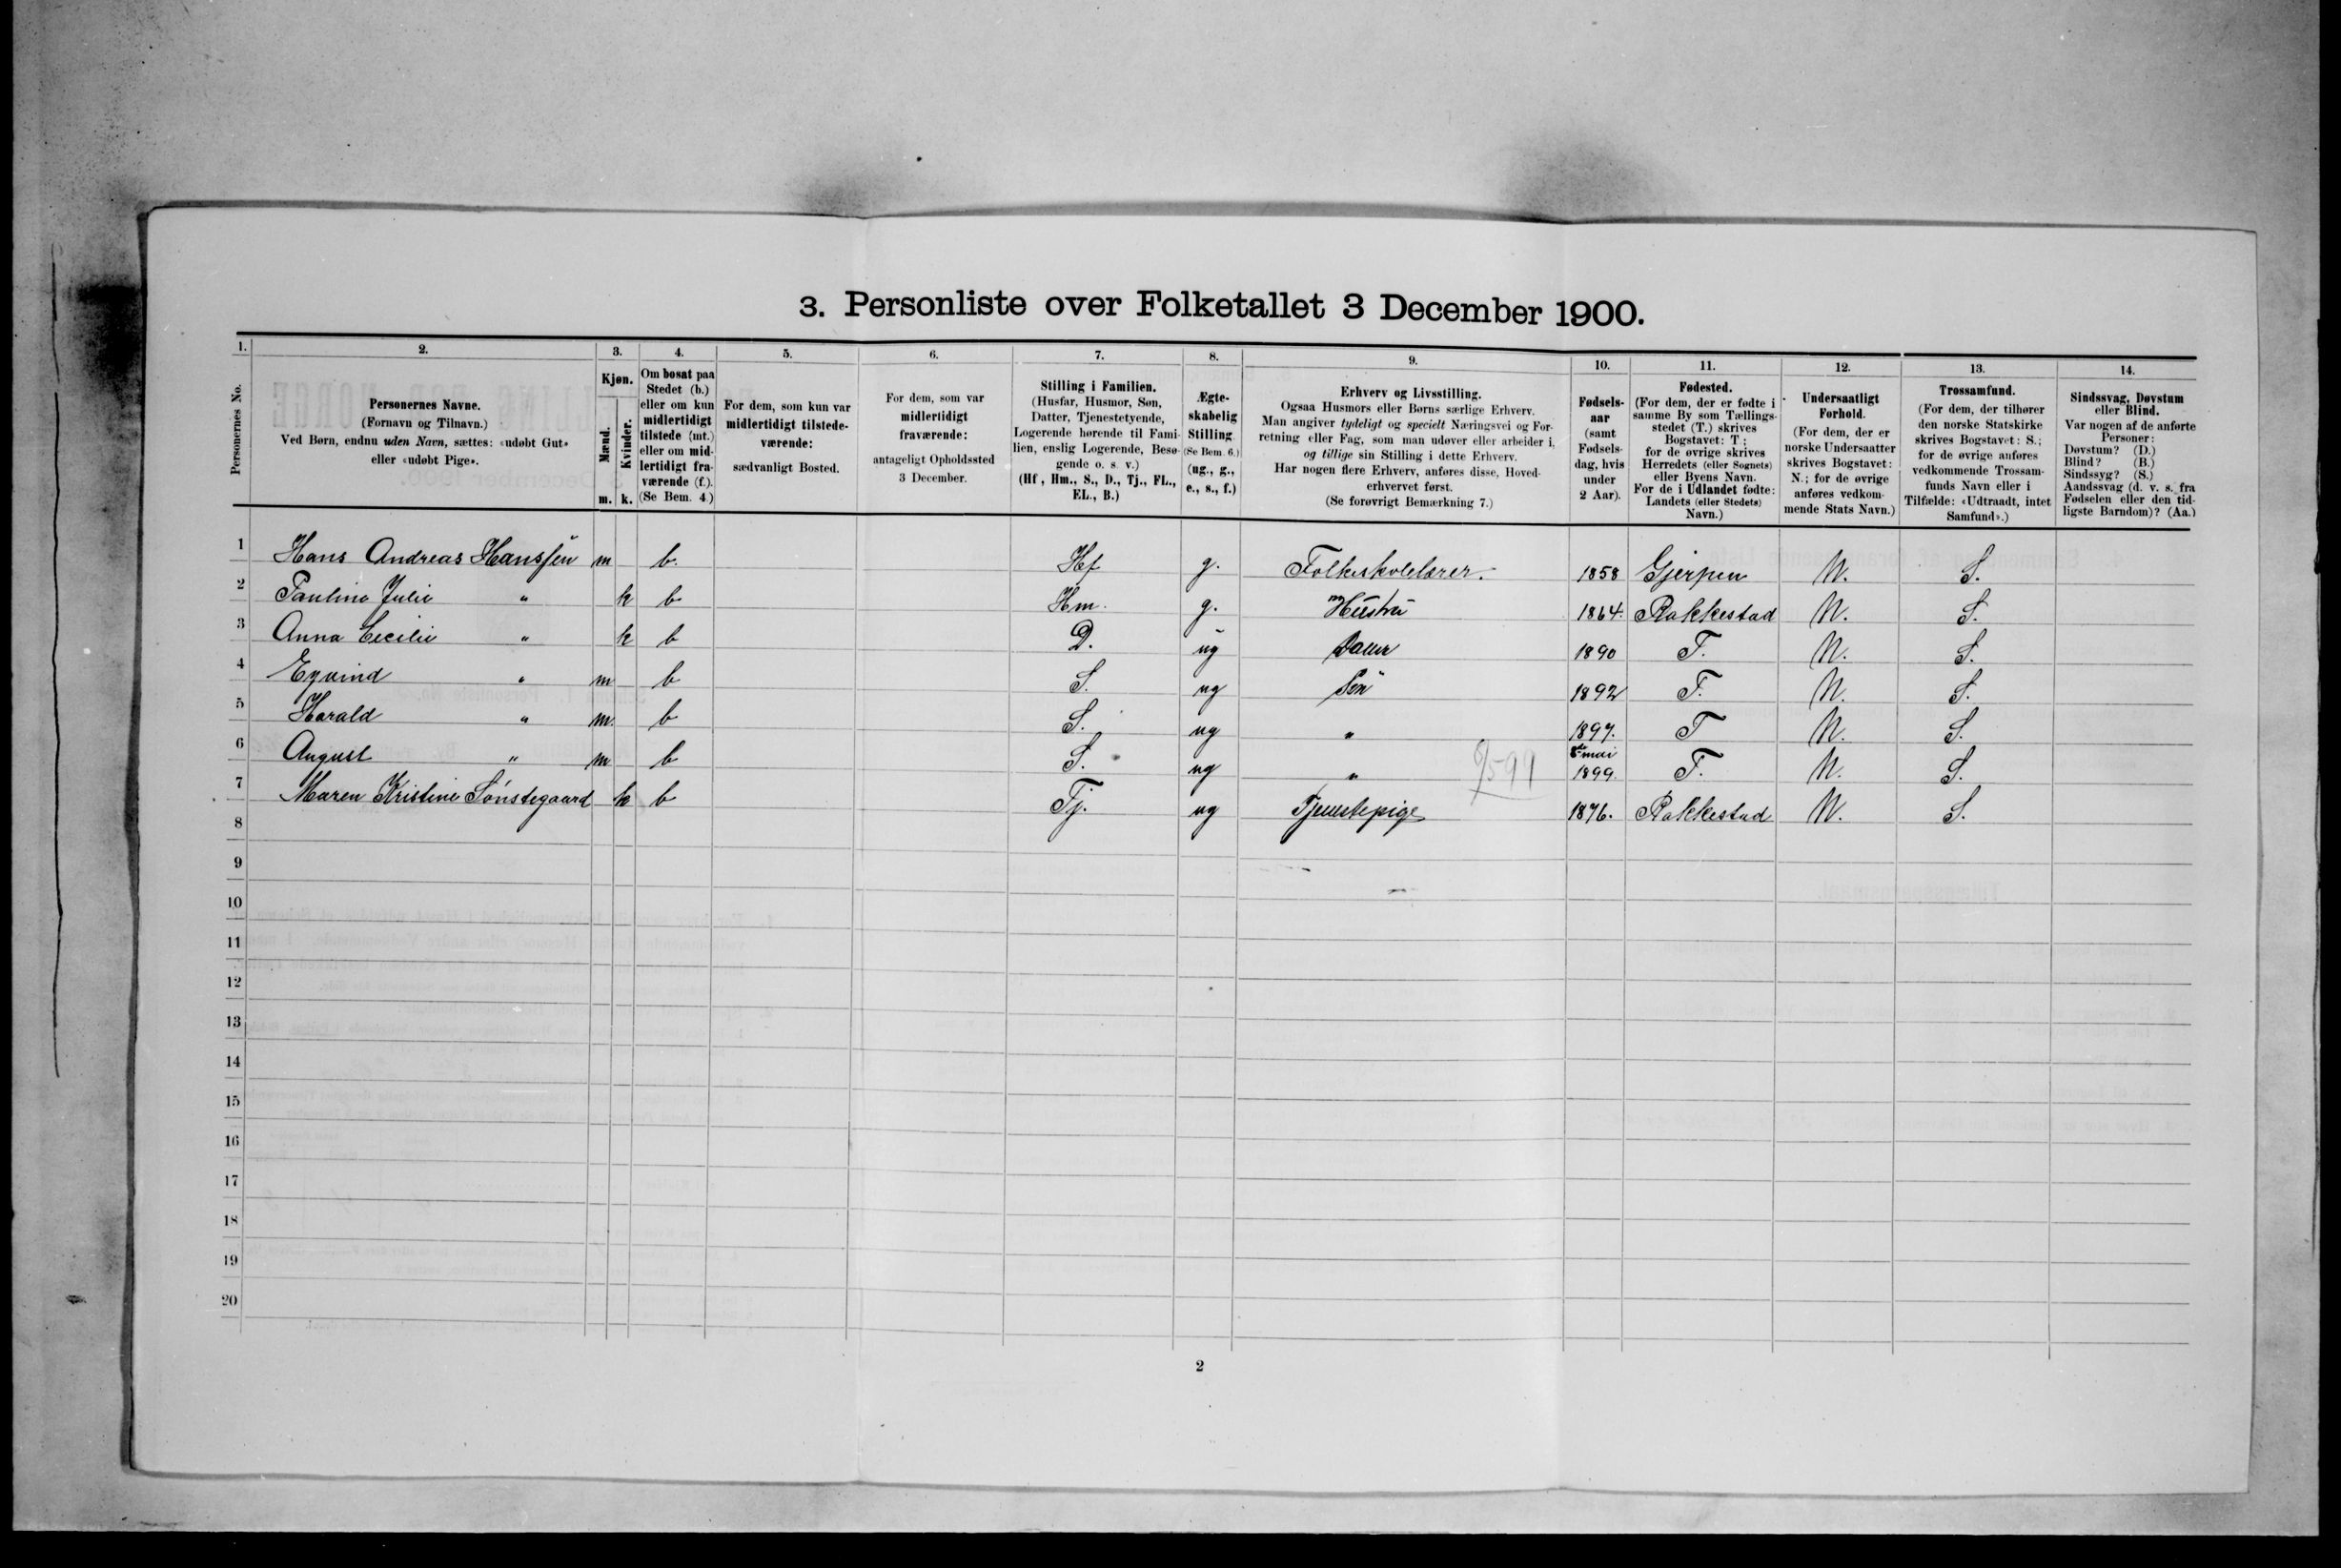 3. Personliste over Folketallet 3 December 1900.
1. 2. 3. 4. 5. 6. 7. 8. 9. 10. 11. 12. 13. 14.
Personernes No.
Personernes Navne.
(Fornavn og Tilnavn.)
Ved Børn, endnu uden Navn, sættes: «udøbt Gut»
eller «udøbt Pige».
Kjøn.
Mænd.
Kvinder.
m. k.
Om bosat paa
Stedet (b.)
eller om kun
midlertidigt
tilstede (mt.)
eller om mid-
lertidigt fra-
værende (f.).
(Se Bem. 4.)
For dem, som kun var
midlertidigt tilstede-
værende:
sædvanligt Bosted.
For dem, som var
midlertidigt
fraværende:
antageligt Opholdssted
3 December.
Stilling i Familien.
(Husfar, Husmor, Søn,
Datter, Tjenestetyende,
Logerende hørende til Fami-
lien, enslig Logerende, Besø-
gende o. s. v.)
(Hf, Hm., S., D., Tj., FL.,
EL., B.)
Ægte-
skabelig
Stilling
(Se Bem. 6.)
(ug., g.,
e., s., f.)
Erhverv og Livsstilling.
Ogsaa Husmors eller Børns særlige Erhverv.
Man angiver tydeligt og specielt Næringsvei og For-
retning eller Fag, som man udøver eller arbeider i,
og tillige sin Stilling i dette Erhverv.
Har nogen flere Erhverv, anføres disse, Hoved-
erhvervet først.
(Se forøvrigt Bemærkning 7.)
Fødsels-
aar
(samt
Fødsels-
dag, hvis
under
2 Aar).
Fødested.
(For dem, der er fødte i
samme By som Tællings-
stedet (T.) skrives
Bogstavet: T;
for de øvrige skrives
Herredets (eller Sognets)
eller Byens Navn.
For de i Udlandet fødte:
Landets (eller Stedets)
Navn.)
Undersaatligt
Forhold.
(For dem, der er
norske Undersaatter
skrives Bogstavet:
N.; for de øvrige
anføres vedkom-
mende Stats Navn.)
Trossamfund.
(For dem, der tilhører
den norske Statskirke
skrives Bogstavet: S.;
for de øvrige anføres
vedkommende Trossam-
funds Navn eller i
Tilfælde: «Udtraadt, intet
Samfund».)
Sindssvag, Døvstum
eller Blind.
Var nogen af de anførte
Personer:
Døvstum? (D.)
Blind? (B.)
Sindssyg? (S.)
Aandssvag (d. v. s. fra
Fødselen eller den tid-
ligste Barndom)? (Aa.)
1 Hans Andreas Hanssen m b. Hf g. Folkeskolelærer. 1858 Gjerpen N. S.
2 Pauline Julie " k b Hm. g. Hustru 1864. Rakkestad N. S.
3 Anna Cecilie " k b D. ug Datter 1890 T. N. S.
4 Eyvind " m b S. ug Søn 1892 T. N. S.
5 Harald " m. b S. ug " 1897. T N. S.
6 August " m b S. ug " 8/5 99 8de mai 1899. T. N. S.
7 Maren Kristine Sønstegaard k b Tj. ug Tjenestepige 1876. Rakkestad N. S.
8
9
10
11
12
13
14
15
16
17
18
19
20
2